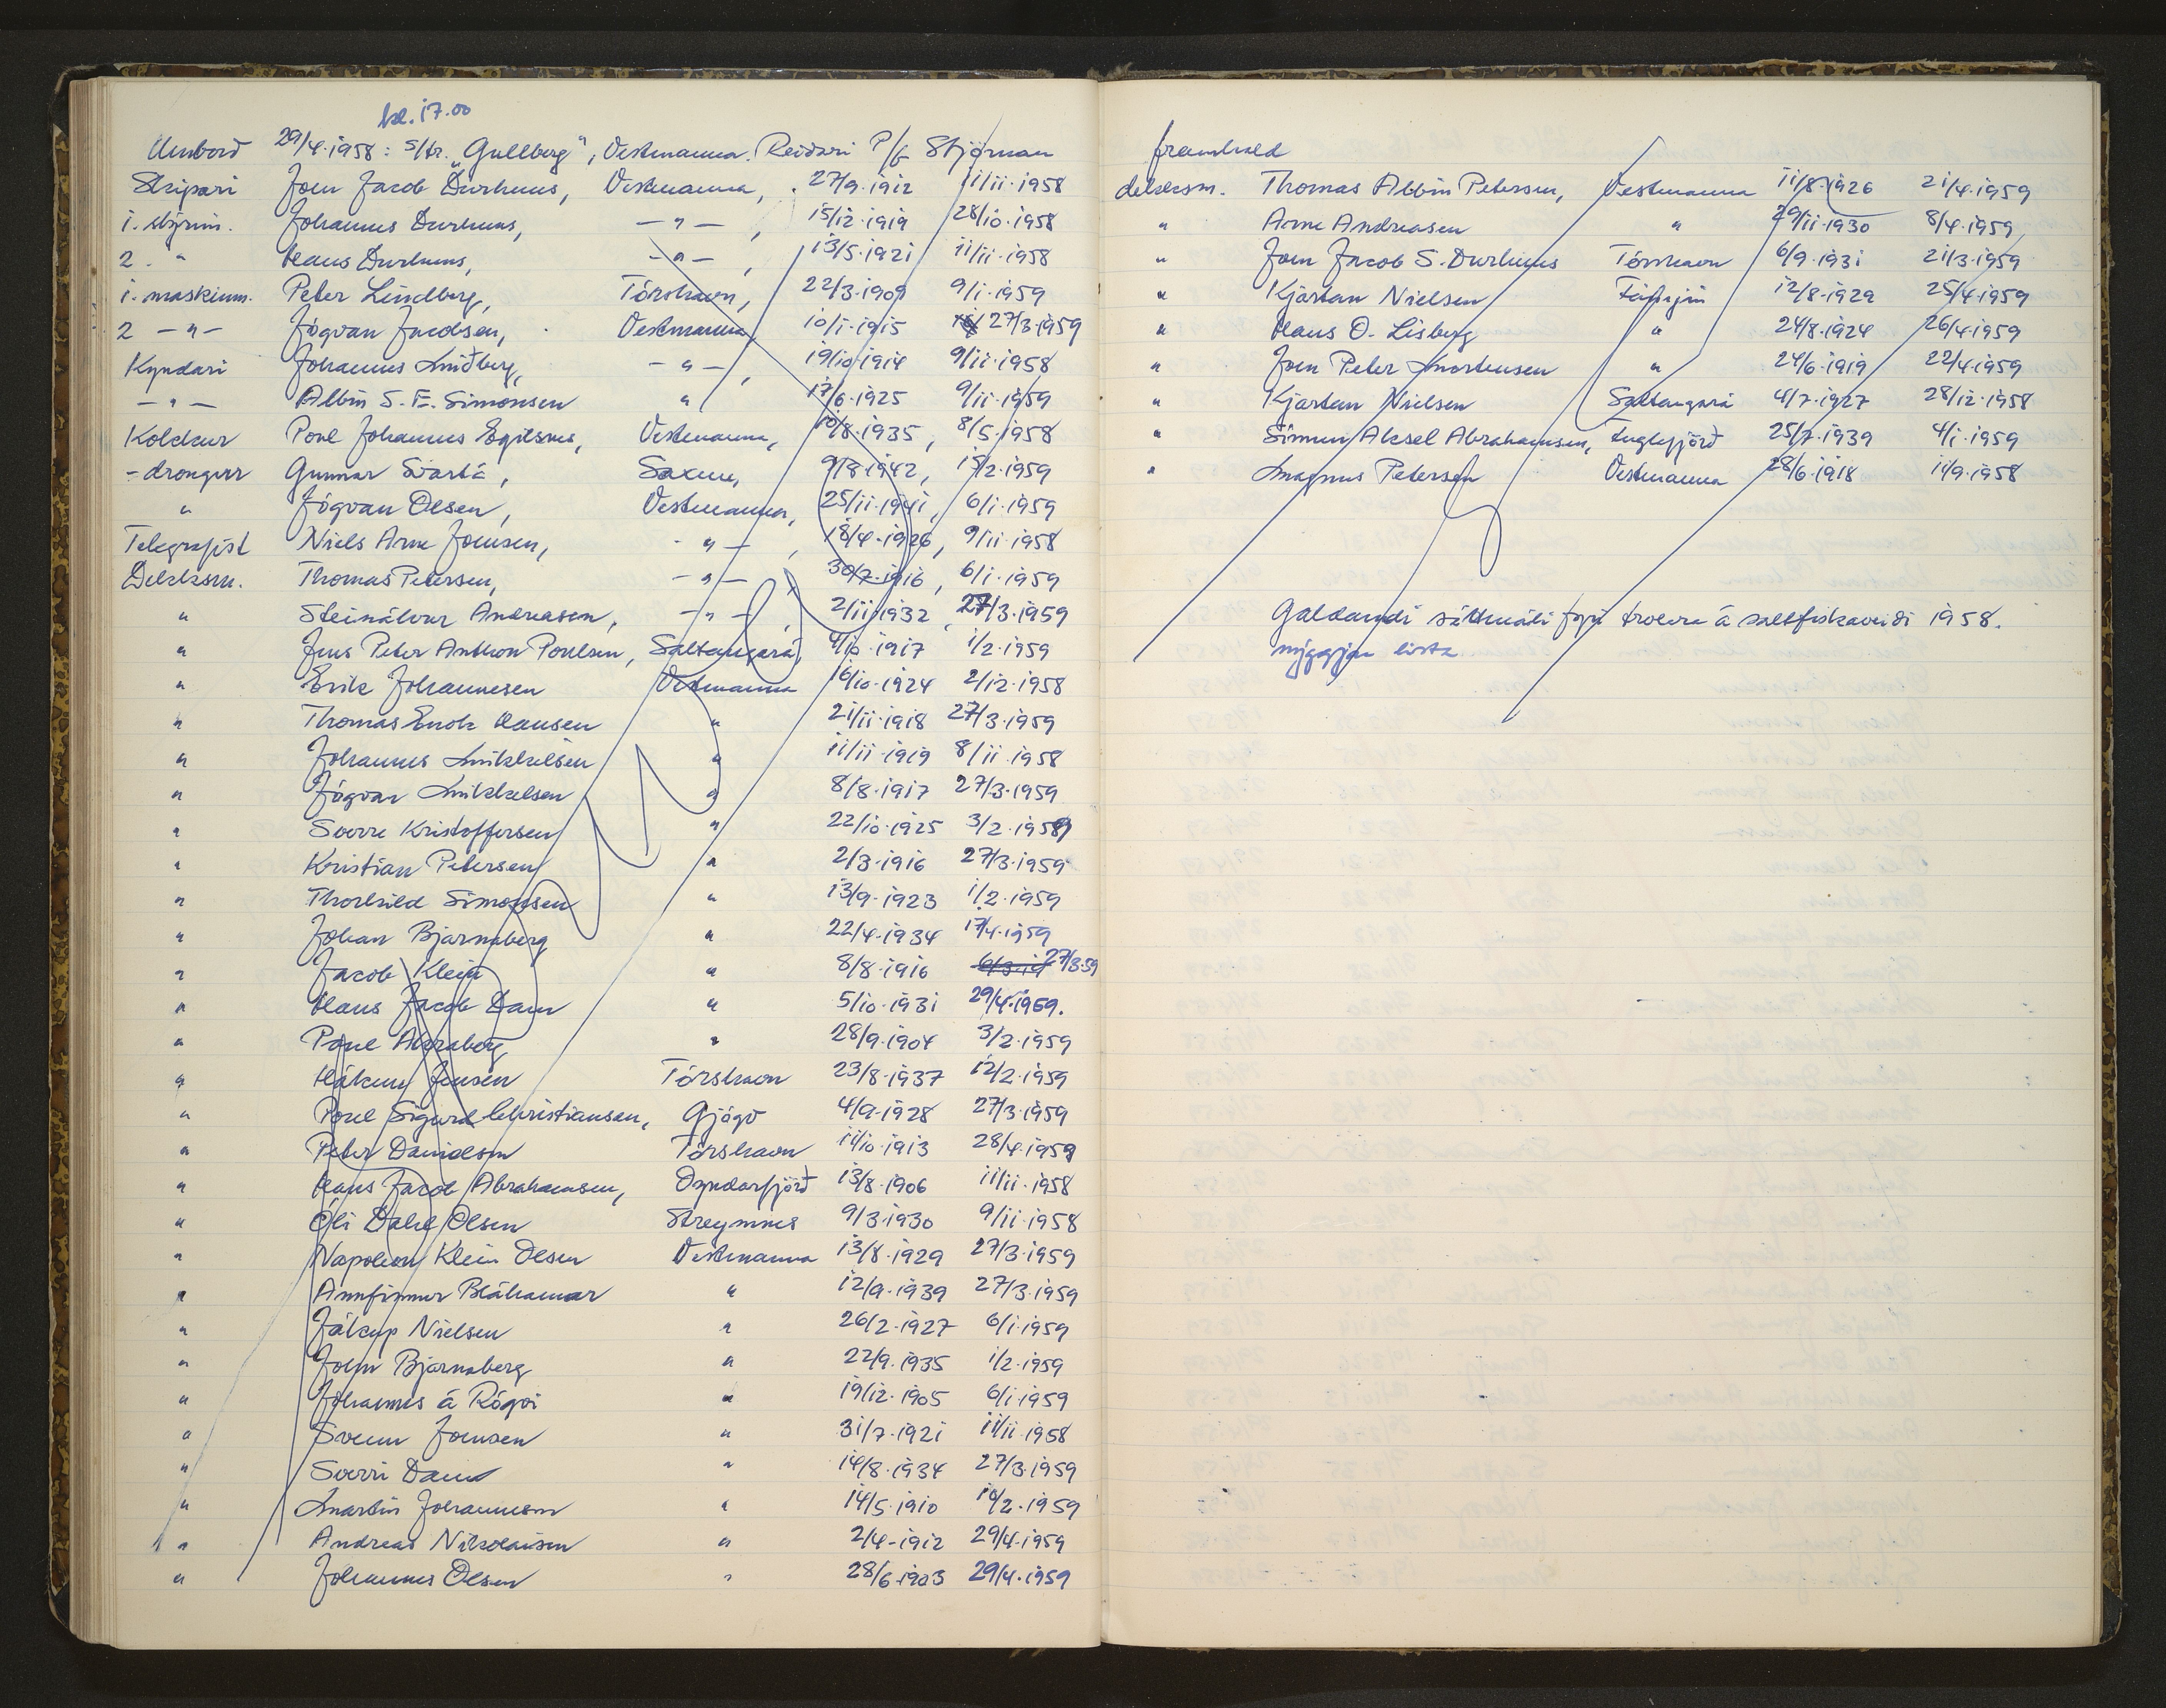 kl. 17.00
Umborð 29/4.1958: s/tr. "Gullberg", Vestmanna. Reiðari P/f Stjørnan
Skipari Joen Jacob Durhuus, Vestmanna, 27/9.1912 11/11.1958
1. stýrim. Johannus Durhuus, -"-, 15/12.1919 28/10.1958
2. " Hans Durhuus, -"-, 13/5.1921 11/11.1958
1. maskinm. Peter Lindberg, Tórshavn, 22/3.1909 9/1.1959
2 -"- Jógvan Jacobsen, Vestmanna 10/1.1915 27/3.1959
Kyndari Johannus Lindberg, -"-, 19/10.1914 9/11.1958
-"- Albin S. F. Simonsen " 17/6.1925 9/11.1959
Kokkur Poul Johannus Egilsnes, Vestmanna, 10/8.1935, 8/5.1958
-drongur Gunnar Svartá, Saxun, 9/8.1942, 15/2.1959
" Jógvan Olsen, Vestmanna, 25/11.1941, 6/1.1959
Telegrafist Niels Arne Joensen, -"-, 18/4.1926, 9/11.1958
Dekksm. Thomas Petersen, -"-, 30/7.1916, 6/1.1959
" Steinálvur Andreasen, -"-, 2/11.1932, 27/3.1959
" Jens Peter Anthon Poulsen, Saltangará, 4/10.1917 1/2.1959
" Erik Johannesen Vestmanna 16/10.1924 2/12.1958
" Thomas Enok Hansen " 21/11.1918 27/3.1959
" Johannus Mikkelsen " 11/11.1919 8/11.1958
" Jógvan Mikkelsen " 8/8.1917 27/3.1959
" Sverre Kristoffersen " 22/10.1925 3/2.1959
" Kristian Petersen " 2/3.1916 27/3.1959
" Thorkild Simonsen " 13/9.1923 1/2.1959
" Johan Bjarnaberg " 22/4.1934 17/4.1959
" Jacob Klein " 8/8.1916 27/3.59
" Hans Jacob Dam " 5/10.1931 29/4.1959.
" Poul Abraberg " 28/9.1904 3/2.1959
" Hákun Jensen Tórshavn 23/8.1937 12/2.1959
" Poul Sigurd Christiansen, Gjógv 4/9.1928 27/3.1959
" Peter Danielsen Tórshavn 11/10.1913 28/4.1959
" Hans Jacob Abrahamsen, Oyndarfjørð 13/8.1906 11/11.1958
" Óli Dahl Olsen Streymnes 9/3.1930 9/11.1958
" Napoleon Klein Olsen Vestmanna 13/8.1929 27/3.1959
" Annfinnur Bláhamar " 12/9.1939 27/3.1959
" Jákup Nielsen " 26/2.1927 6/1.1959
" John Bjarnaberg " 22/9.1935 1/2.1959
" Johannus á Rógvi " 19/12.1905 6/1.1959
" Svenn Joensen " 31/7.1921 11/11.1958
" Sverri Dam " 14/8.1934 27/3.1959
" Martin Johannesen " 14/5.1910 10/2.1959
" Andreas Nikolaisen " 2/4.1912 29/4.1959
" Johannes Olsen " 28/6.1903 29/4.1959
framhald
dekksm. Thomas Albin Petersen, Vestmanna 11/8.1926 21/4.1959
" Arne Andreasen " 29/11.1930 8/4.1959,
" Joen Jacob S. Durhuus Tórshavn 6/9.1931 21/3.1959
" Kjartan Nielsen 12/8.1929 25/4.1959
" Hans O. Lisberg " 24/8.1924 26/4.1959
" Joen Peter Mortensen " 24/6.1919 22/4.1959
" Kjartan Nielsen Saltangará 4/7.1927 28/12.1958
" Símun Aksel Abrahamsen, Fuglafjørð 25/7.1939 4/1.1959
" Magnus Petersen Vestmanna 28/6.1918 11/9.1958
Galdandi sáttmáli fyri trolara á saltfiskaveiði 1958.
mýggjan lista